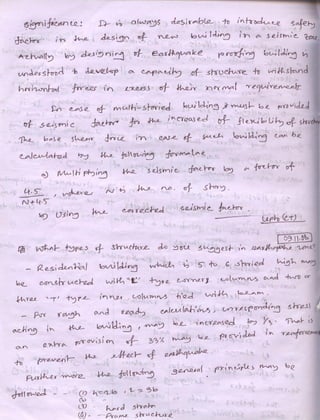 Significance: It is always desirable to introduce safety
factor in the design of new building in a seismic zone
Actually by designing of Earthquake proofing building is
understood to develop a capacity of structure to withstand
horizontal forces in excess of their normal requirement
In case of multi-storied building must be provided
of seismic factor for the increased of flexibility of structure
The base shear force in case of such building can be
calculated by the following formulae
a) Multiplying the seismic factor by a factor of
4.5
N+4.5 , where N is the no. of story.
b) Using the corrected seismic factor.
09.11.96
What types of structure do you suggest in earthquake zone
- Residential building which is 5 to 6 storied high may
be constructed with 'L' type corners columns and two or
three 'T' type inner columns tied with beam.
- For rough and ready calculations, corresponding stress
acting in the building, may be increased by 1/3. That is
an extra provision of 33% may be provided in reinforcement
to prevent the effect of earthquake.
Further more the following general principles may be
followed -
hard strata
Frame structure